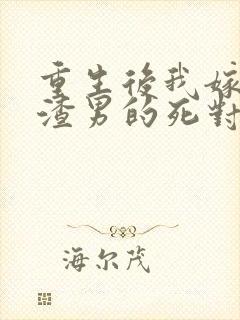 重生後我嫁
渣男的死對
海尔茂